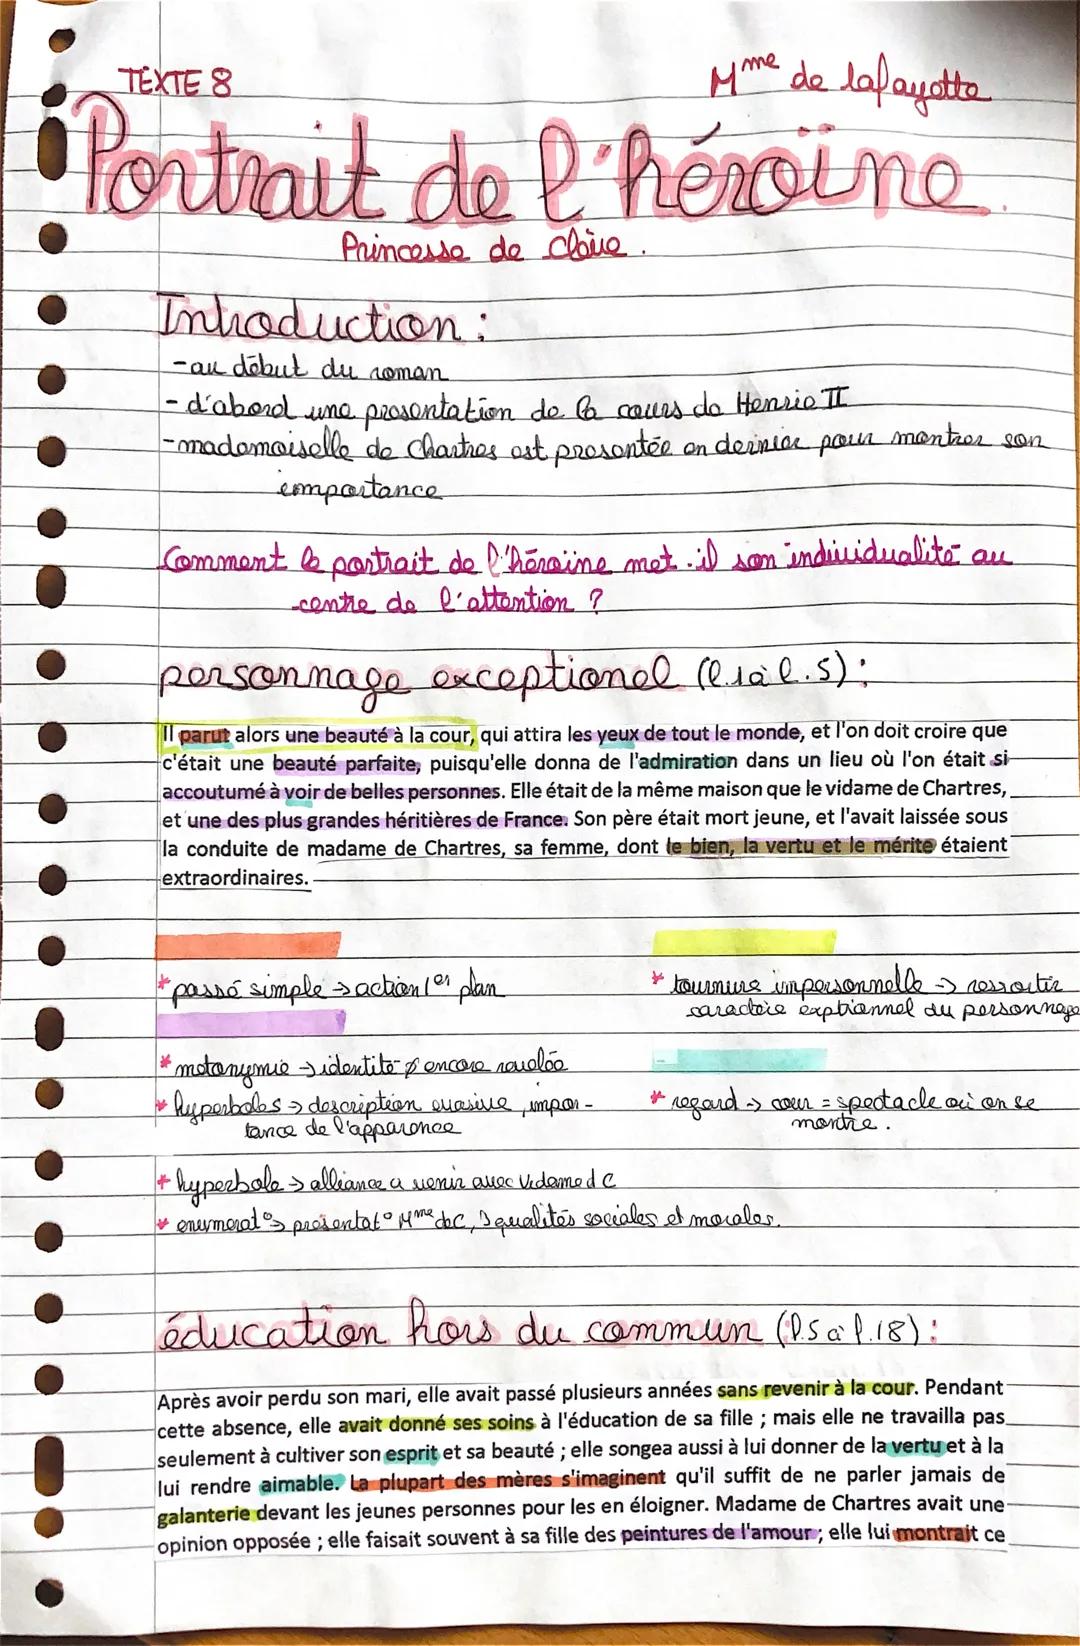 TEXTE 8
Mme de lafayette
Portrait de l'héroïne.
Princesse de Clève.
Introduction :
-au début du roman
-d'abord une presentation de la cours de Henrie II
-mademoiselle de Chartres est presentée en dernier pour montrer son
importance
Comment le portrait de l'héroïne met-il son individualité au
centre de l'attention ?
personnage exceptionel (l.1à l.5) :
Il parut alors une beauté à la cour, qui attira les yeux de tout le monde, et l'on doit croire que
c'était une beauté parfaite, puisqu'elle donna de l'admiration dans un lieu où l'on était si
accoutumé à voir de belles personnes. Elle était de la même maison que le vidame de Chartres,
et une des plus grandes héritières de France. Son père était mort jeune, et l'avait laissée sous
la conduite de madame de Chartres, sa femme, dont le bien, la vertu et le mérite étaient
extraordinaires.
* passé simple → action 1er plan
* tournure impersonnelle → ressortir
caractère exptionnel du personnage
* metonymie → identité ø encore revelée
* hyperboles → description evasive, impor-
tance de l'apparence
* regard → cour = spectacle où on se
montre.
* hyperbole → alliance a venir avec Vidame d C
* enumerat° → présentat° Mme de C, 3 qualités sociales et morales.
éducation hors du commun (l.5 à l.18) :
Après avoir perdu son mari, elle avait passé plusieurs années sans revenir à la cour. Pendant
cette absence, elle avait donné ses soins à l'éducation de sa fille ; mais elle ne travailla pas
seulement à cultiver son esprit et sa beauté ; elle songea aussi à lui donner de la vertu et à la
lui rendre aimable. La plupart des mères s'imaginent qu'il suffit de ne parler jamais de
galanterie devant les jeunes personnes pour les en éloigner. Madame de Chartres avait une
opinion opposée ; elle faisait souvent à sa fille des peintures de l'amour ; elle lui montrait ce